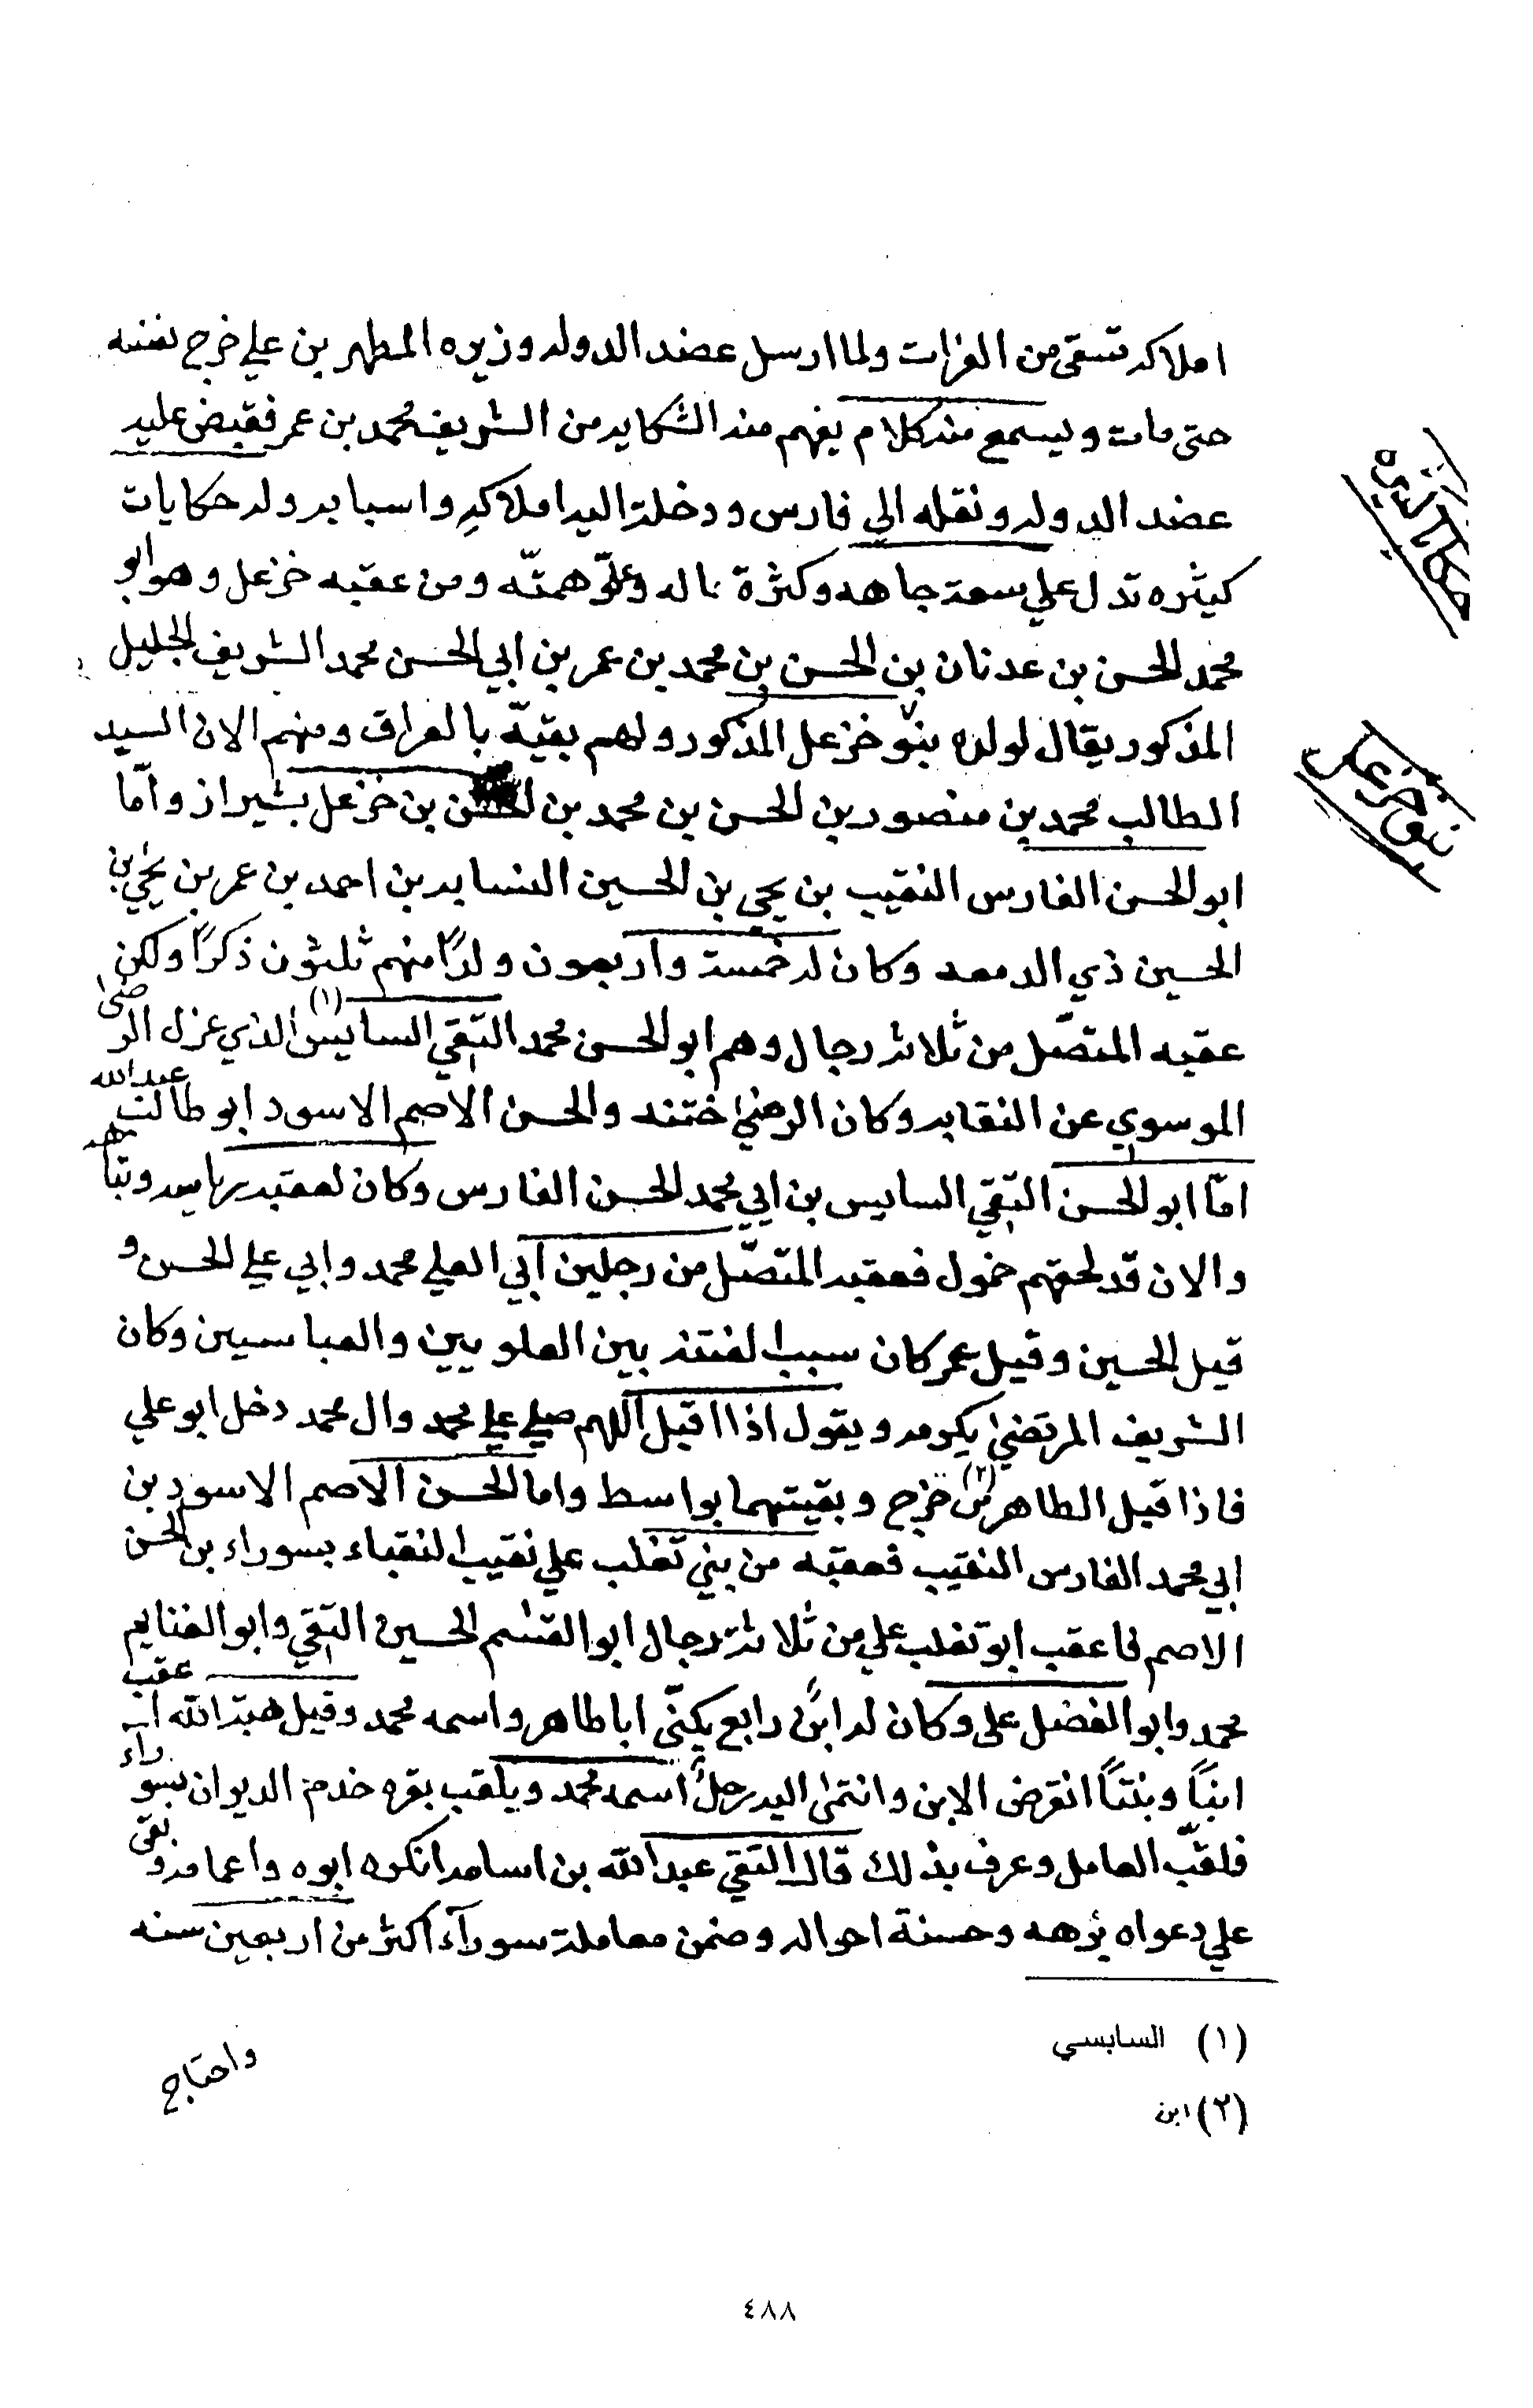 املاكه تسقى من الفرات ولما ارسل عضد الدوله وزيره المطهر بن علي خرج نفسه
حتى مات ويسمع منه كلام يفهم منه الشكايه من الشريف محمد بن عمر فقبض عليه
عضد الدوله ونقله الي فارس ودخلت اليه املاكه واسبابه وله حكايات
كيثره تدل علي سعة جاهه وكثرة ماله وعلوّ همتّه ومن عقبه خزعل وهو ابو
محمد الحسن بن عدنان بن الحسن بن محمد بن عمر بن ابي الحسن محمد الشريف الجليل
المذكور يقال لولده بنو خزعل المذكور ولهم بقيّة بالعراق ومنهم الان السيد
الطالب محمد بن منصور بن الحسن بن محمد بن الحسن بن خزعل بشيراز وامّا
ابو الحسن الفارس النقيب بن يحي بن الحسين النسابه بن احمد بن عمر بن يحيٰ بن
الحسين ذي الدمعه وكان له خمسة واربعون ولدًا منهم ثلثون ذكرًا ولكن
عقبه المتصّل من ثلاثة رجال وهم ابو الحسن محمد التقي السايس (١) الذي عزل الرضىٰ
الموسوي عن النقابه وكان الرضيٰ ختنه والحسن الاصم الاسود ابو طالب عبد الله
امّا ابو الحسن التقي السايس بن ابي محمد الحسن الفارس وكان لعقبه رياسه ونباهه
والان قد لحقهم خمول فعقبه المتصّل من رجلين ابي العلي محمد وابي علي الحسن و
قيل الحسين وقيل عمر كان سببا لفتنة بين العلويين والعباسيين وكان
الشريف المرتضىٰ يكرمه ويقول اذا اقيل اللهم صلي علي محمد وال محمد دخل ابو علي
فاذا قيل الطاهرين (٢) خرج وبقيتهما بواسط واما الحسن الاصم الاسود بن
ابي محمد الفارس النقيب فعقبه من بني تغلب علي نقيب النقباء بسوراء بن الحسن
الاصم فاعقب ابو تغلب علي من ثلاثة رجال ابو القسم الحسين التقي وابو الغنايم
محمد وابو الفضل على وكان له ابنٌ رابع يكنّى ابا طاهر واسمه محمد وقيل هبة الله اعقب
ابنًا وبنتًا انقرض الابن وانتمىٰ اليه رجلٌ اسمه محمد ويلقب بقره خدم الديوان بسوراء
فلقّب العامل وعرف بذلك قال التقي عبد الله بن اسامه انكره ابوه واعمامه وبقى
علي دعواه برهه وحسنة احواله وضمن معاملة سورآء اكثر من اربعين سنه
واحتاج
بنو خزعل
(١) السابسي
(٢) ابن
٤٨٨